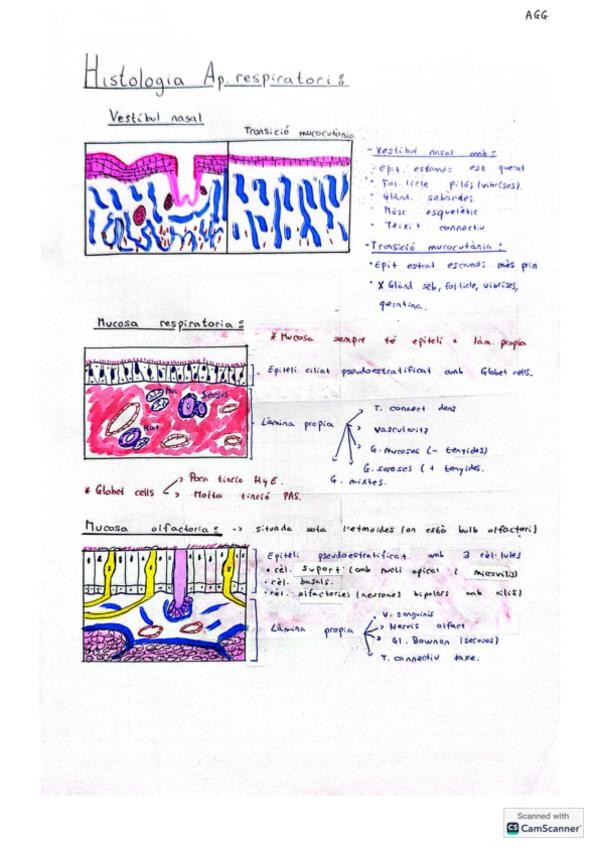 AGG
Histologia Ap. respiratori:
Vestíbul nasal
Transició mucocutània
- Vestíbul nasal amb:
• Epit. estamos est querat
• Fol·licle pilós (vibrises).
• Glànd. sebàcdes.
• Músc esquelètic
• Teixit connectiu
- Transició mucocutània:
• Epit estrat escamós més prim
• X Glànd seb, fol·licle, vibrises,
queratina.
Mucosa respiratoria:
* Mucosa sempre té epiteli + làm. propia
Epiteli ciliat pseudoestratificat amb Globet cells.
Làmina propia
T. connect dens
Vascularitz
G. mucoses (- tenyides)
G. seroses (+ tenyides.
G. mixtes.
Muc
Serosa
Mixt
* Globet cells
Poca tinció H y E.
Molta tinció PAS.
Mucosa olfactoria: -> situada sota l'etmoides (on està bulb olfactori)
Epiteli pseudoestratificat amb 3 cèl·lules
• cèl. suport: (amb nucli apical i microvilis)
• cèl. basals.
• cèl. olfactories (neurones bipolars amb cilis)
Làmina propia
V. sanguinis
Nervis olfact
Gl. Bowman (seroses)
T. connectiu laxe.
Scanned with
CS CamScanner